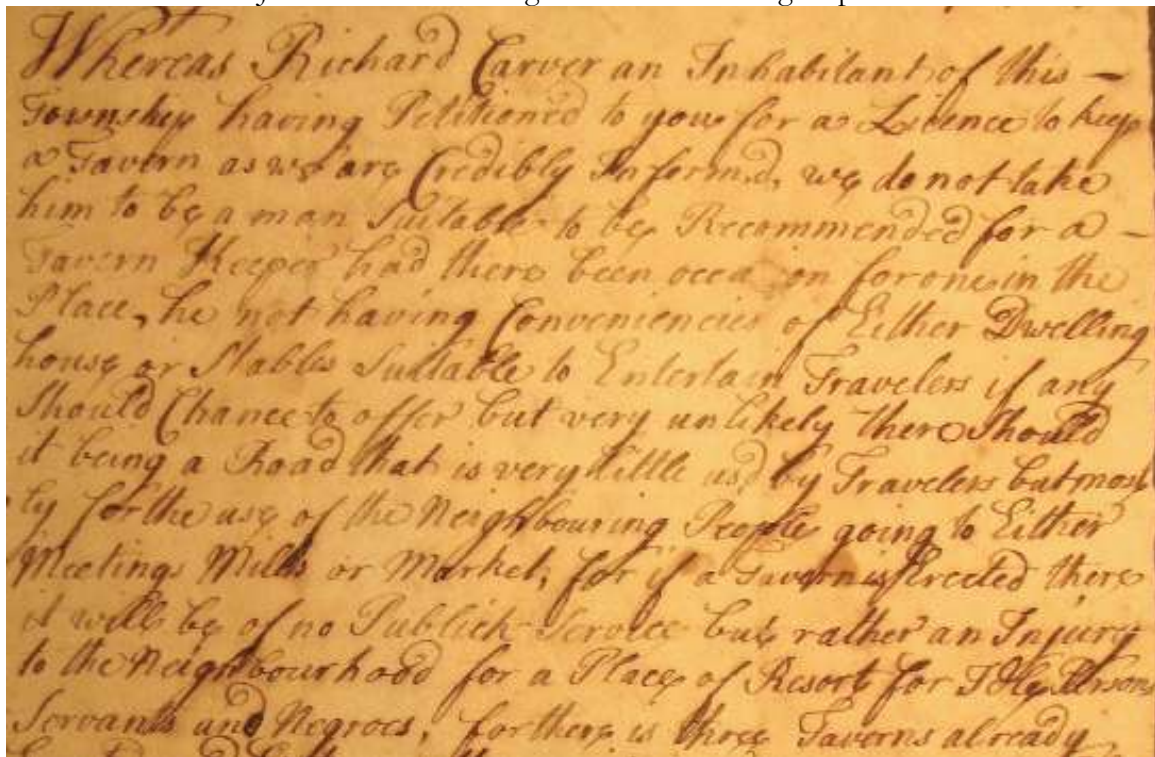 Whereas Richard Carver an Inhabitant of this —
Township having Petitioned to you for a Licence to keep
a Tavern as we are Credibly Inform'd, we do not take
him to be a man Suitable to be Recommended for a —
Tavern Keeper had there been occasion for one in the
Place, he not having Conveniencies of Either Dwelling
house or Stables Suitable to Entertain Travelers if any
Should Chance to offer but very unlikely there Should
it being a Road that is very little us'd by Travelers but most
ly for the use of the Neighbouring People going to Either
Meetings Mills or Market, for if a Tavern is Erected there
it will be of no Publick Service but rather an Injury
to the Neighbourhood for a Place of Resort for Idle Persons
Servants and Negroes, for there is three Taverns already